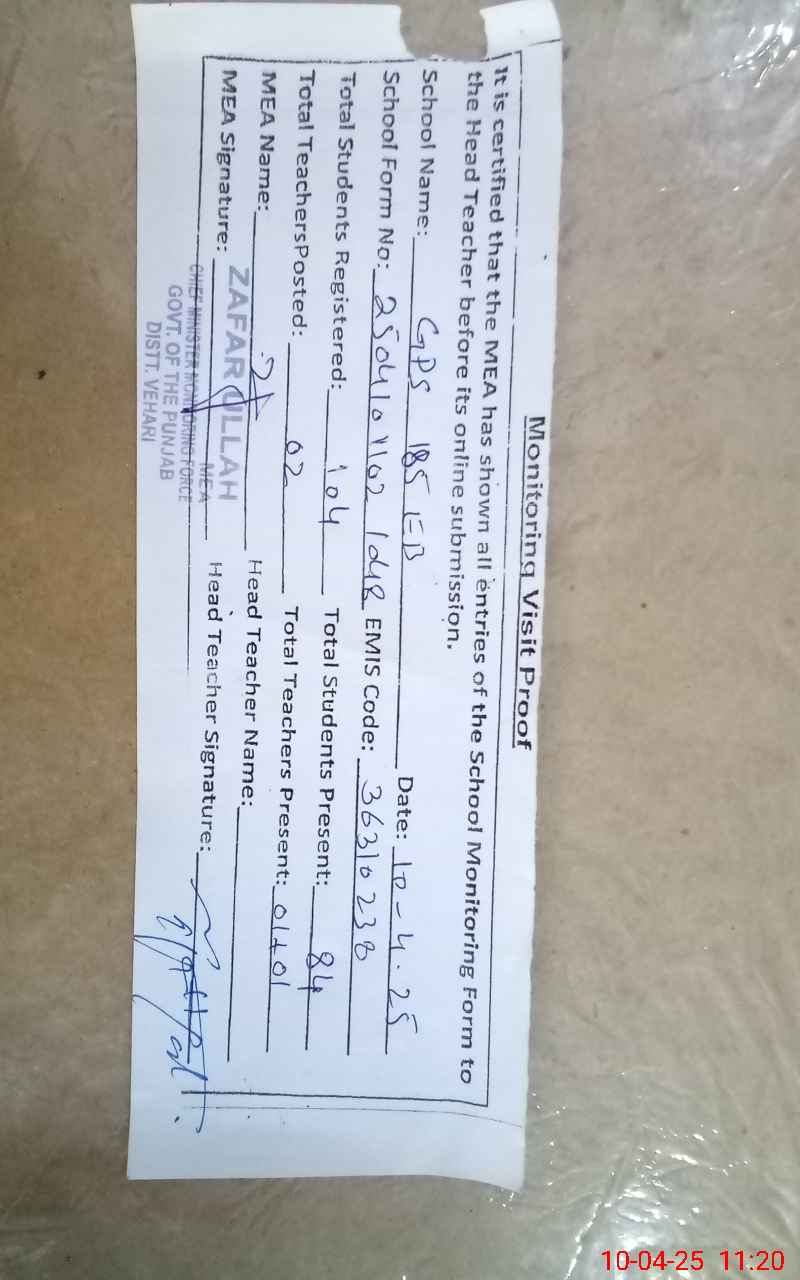 Monitoring Visit Proof
It is certified that the MEA has shown all entries of the School Monitoring Form to
the Head Teacher before its online submission.
School Name: GPS 185 EB Date: 10-4-25
School Form No: EMIS Code: 36310238
Total Students Registered: 104 Total Students Present: 84
Total TeachersPosted: 02 Total Teachers Present: 01+01
MEA Name: Head Teacher Name:
MEA Signature: Head Teacher Signature:
ZAFAR ULLAH
MEA
CHIEF MINISTER MONITORING FORCE
GOVT. OF THE PUNJAB
DISTT. VEHARI
10-04-25 11:20